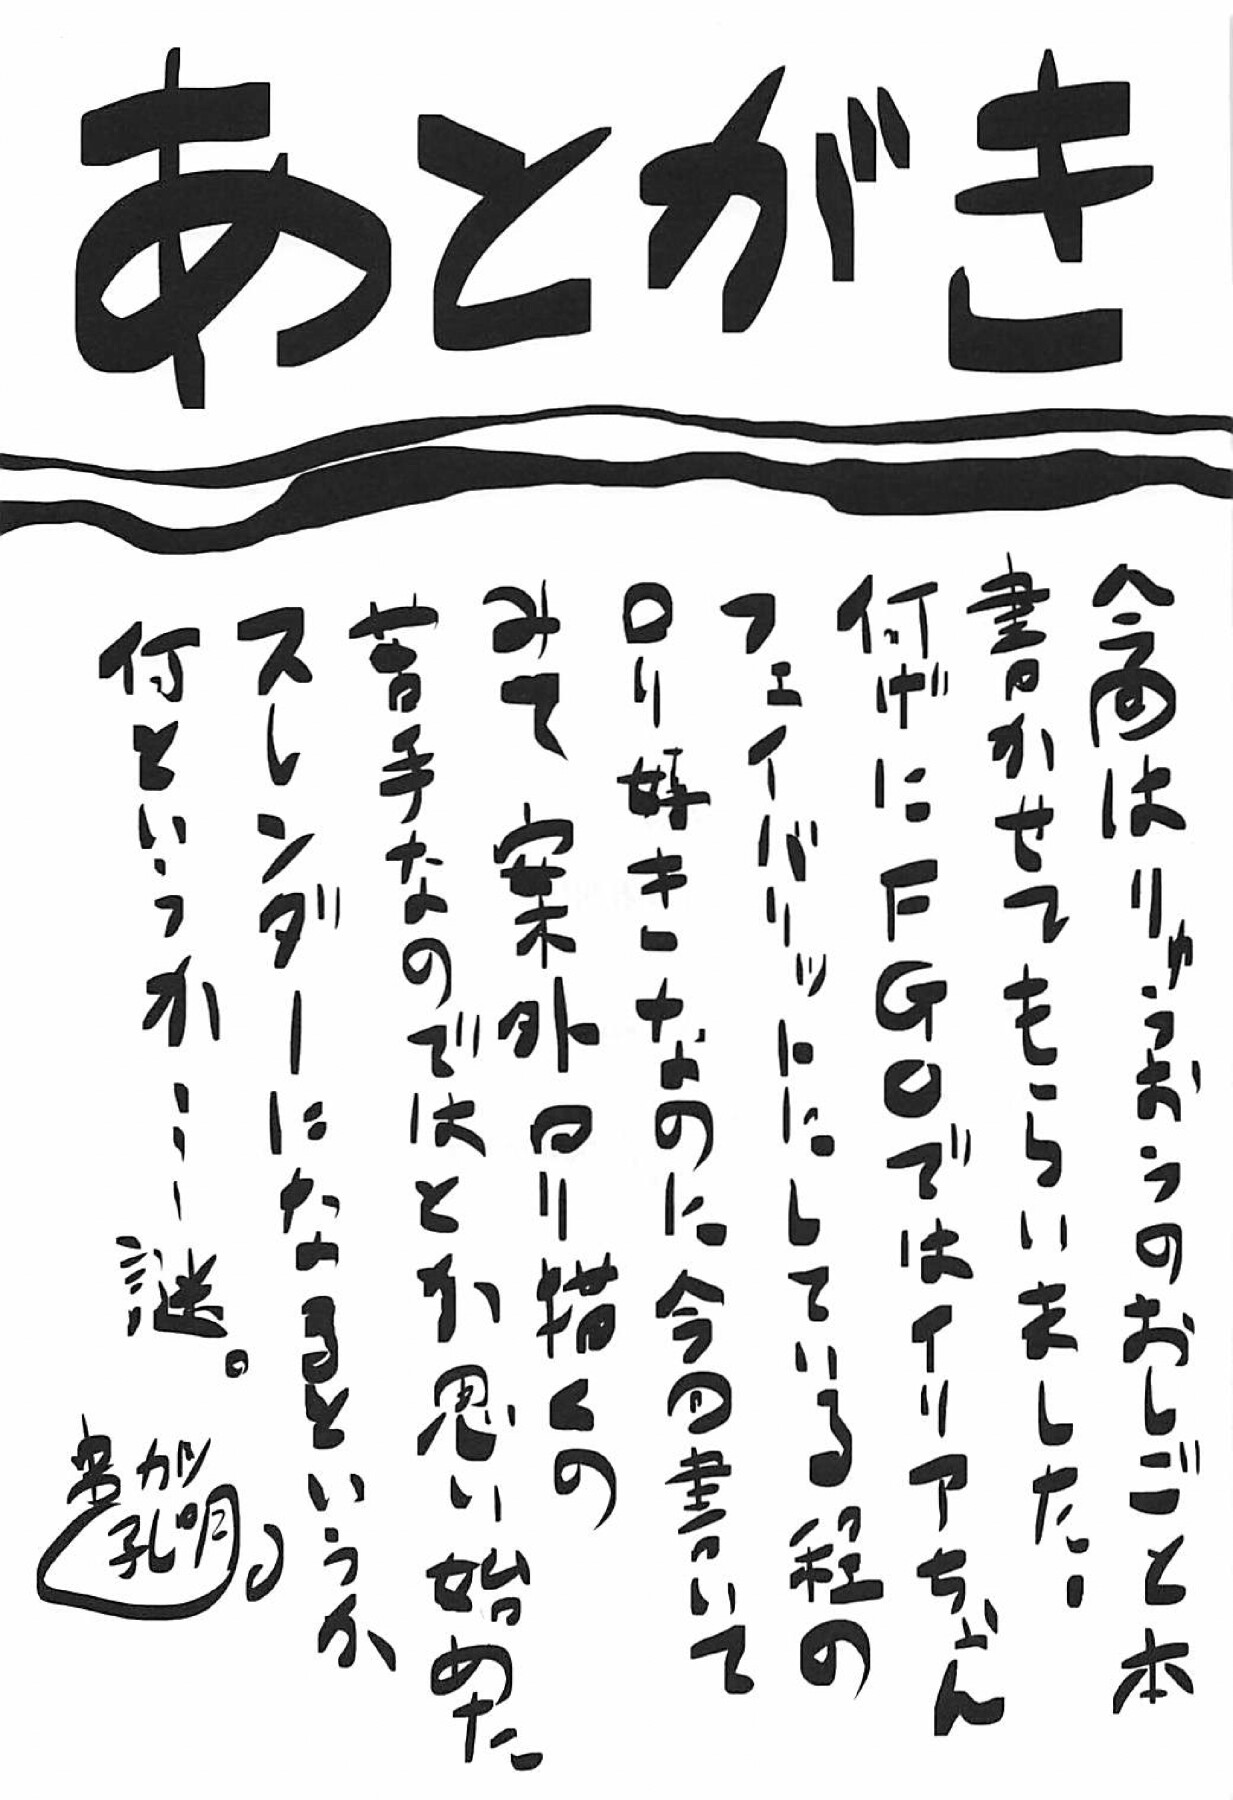 あとがき
今回はりゅうおうのおしごと本
書かせてもらいました!
何げにFGOではイリアちゃん
フェイバリットにしている程の
ロリ好きなのに今回書いて
みて案外ロリ描くの
苦手なのではとか思い始めた
スレンダーになるというか
何というか…謎。
孔明